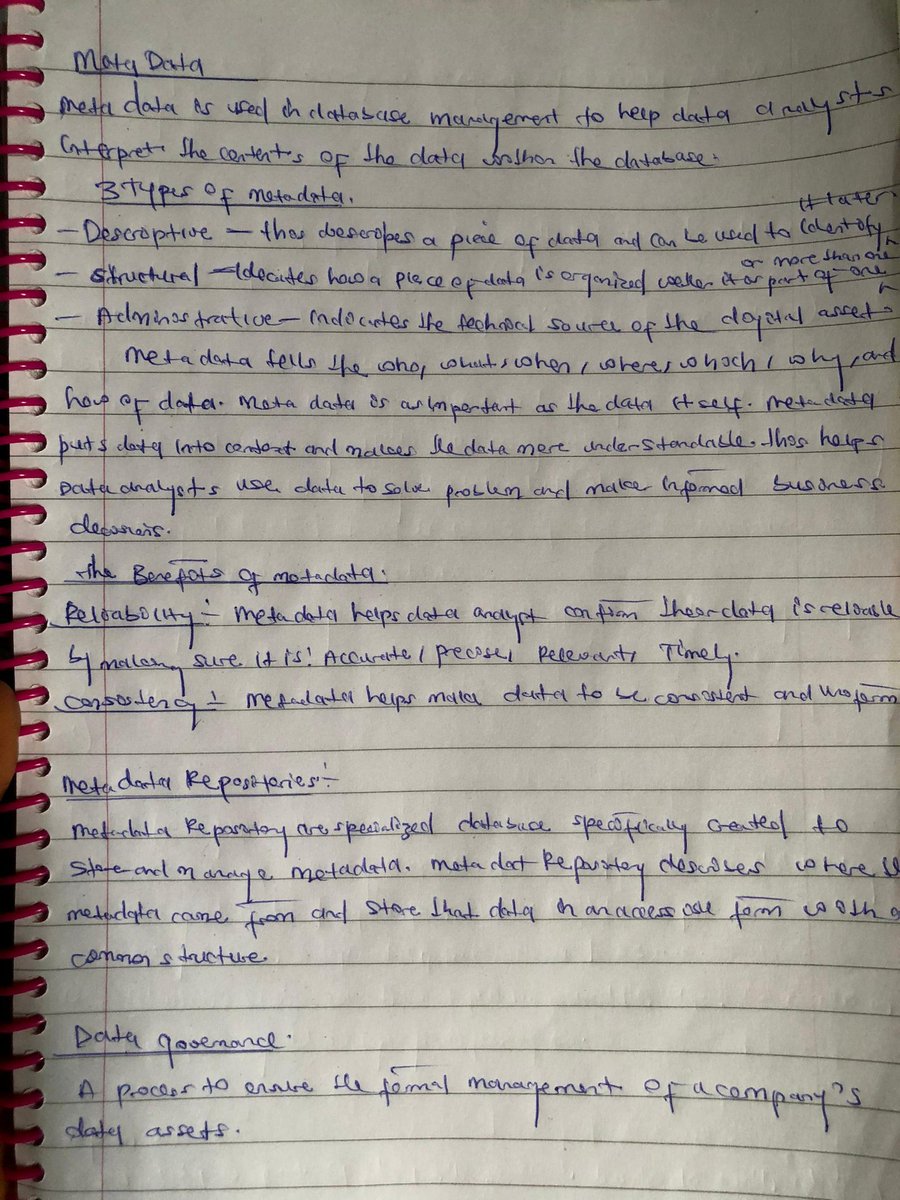 Meta Data
Meta data is used in database management to help data analysts
interpret the contents of the data within the database.
3 types of metadata.
it later
- Descriptive - this describes a piece of data and can be used to identify
or more than one
- Structural - Idecates how a piece of data is organized wether it or part of one
- Administrative - indicates the technical source of the digital asset.
Metadata tells the who, what, when, where, which, why, and
how of data. Meta data is as important as the data itself. Metadata
puts data into context and makes the data more understandable. this helps
Data analysts use data to solve problem and make informed business
decisions.
The Benefits of metadata.
Reliability :- metadata helps data analyst confirm their data is reliable
by making sure it is: Accurate, precise, Relevant, Timely.
Consistency :- Metadata helps make data to be consistent and uniform
Metadata Repositories :-
Metadata Repository are specialized database specifically created to
store and manage metadata. Metadat Repository describes where
metadata came from and store that data in an accessible form with a
common structure.
Data governance.
A process to ensure the formal management of a company's
data assets.